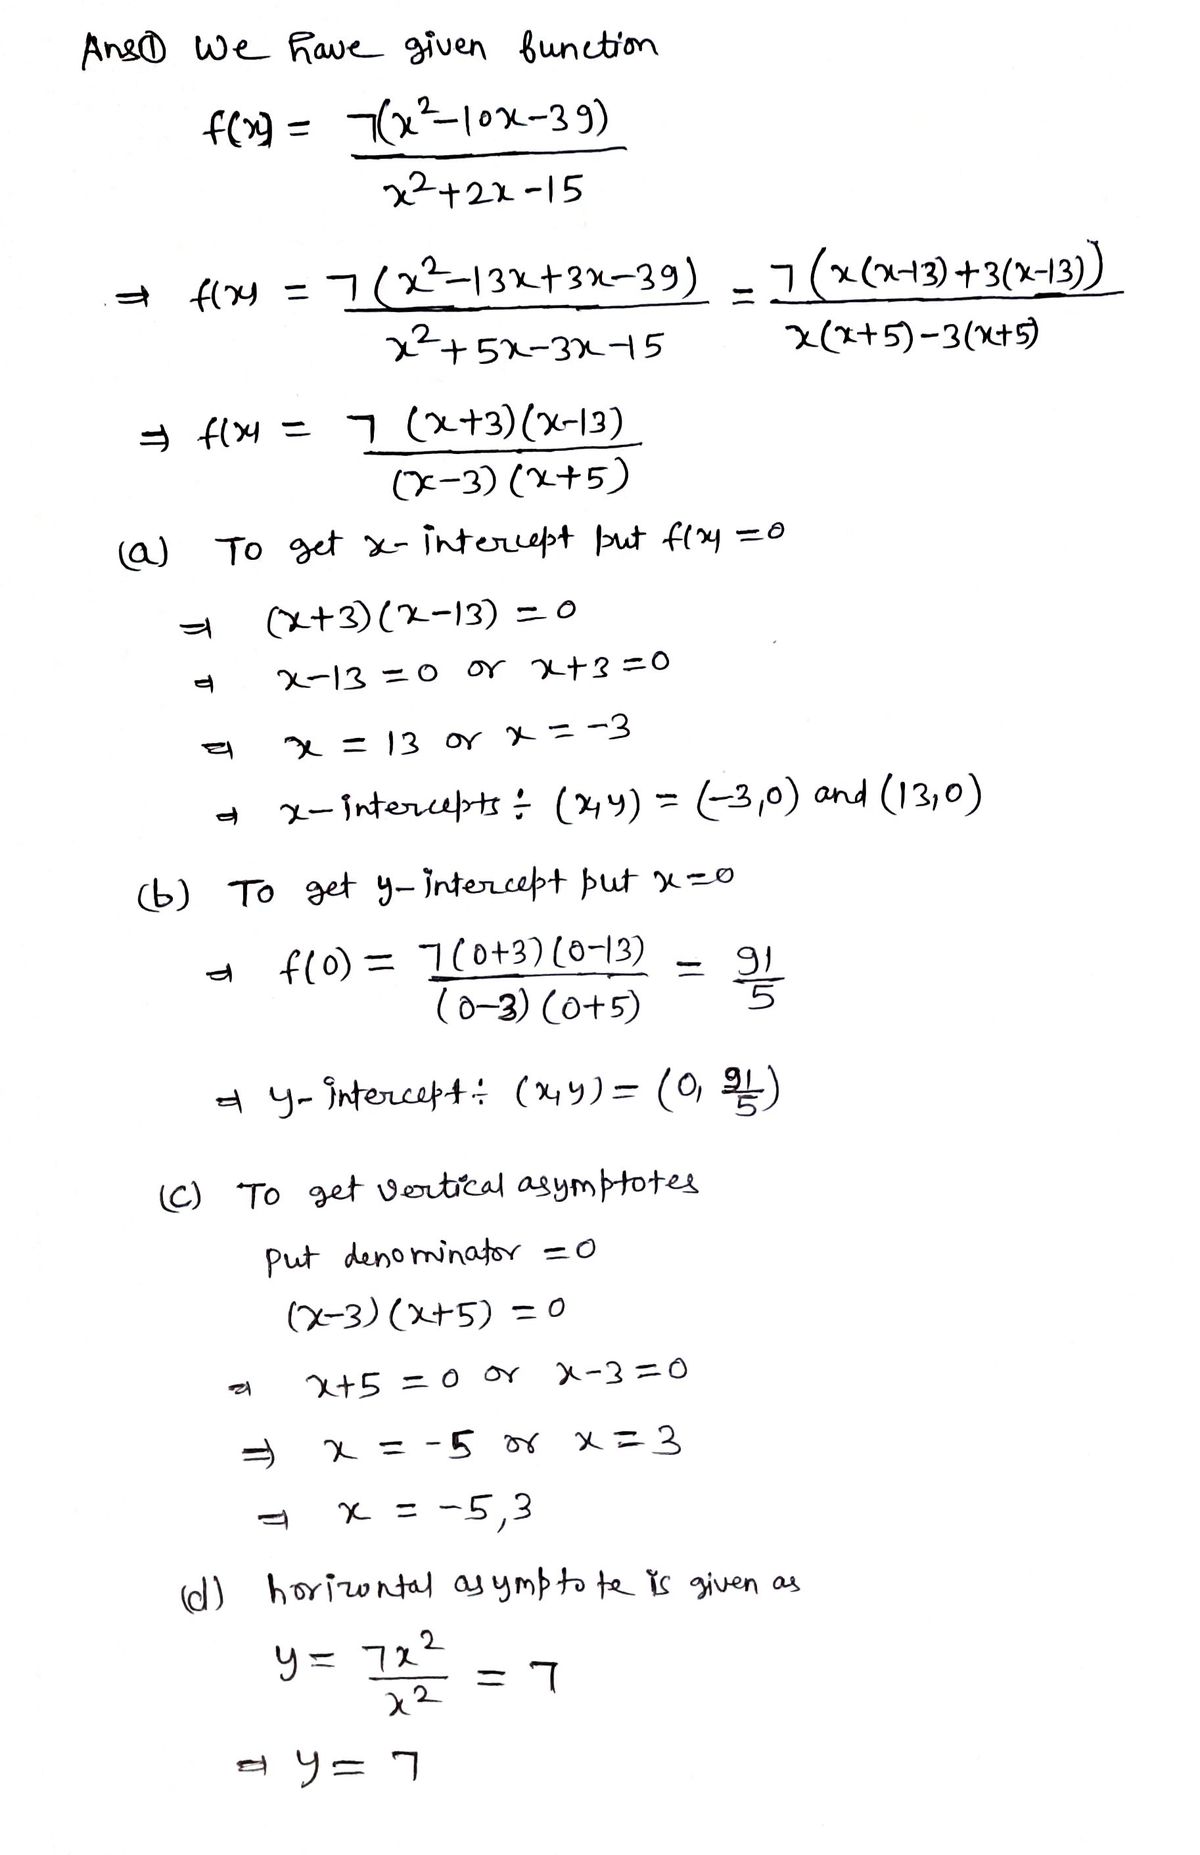 Ans① We have given function
f(x) = 7(x²-10x-39) / x²+2x-15
⇒ f(x) = 7(x²-13x+3x-39) / x²+5x-3x-15 = 7(x(x-13)+3(x-13)) / x(x+5)-3(x+5)
⇒ f(x) = 7 (x+3)(x-13) / (x-3)(x+5)
(a) To get x-intercept put f(x) = 0
⇒ (x+3)(x-13) = 0
⇒ x-13 = 0 or x+3 = 0
⇒ x = 13 or x = -3
⇒ x-intercepts ÷ (x,y) = (-3,0) and (13,0)
(b) To get y-intercept put x=0
⇒ f(0) = 7(0+3)(0-13) / (0-3)(0+5) = 91/5
⇒ y-intercept ÷ (x,y) = (0, 91/5)
(c) To get vertical asymptotes
put denominator = 0
(x-3)(x+5) = 0
⇒ x+5 = 0 or x-3 = 0
⇒ x = -5 or x = 3
⇒ x = -5,3
(d) horizontal asymptote is given as
y = 7x²/x² = 7
⇒ y = 7